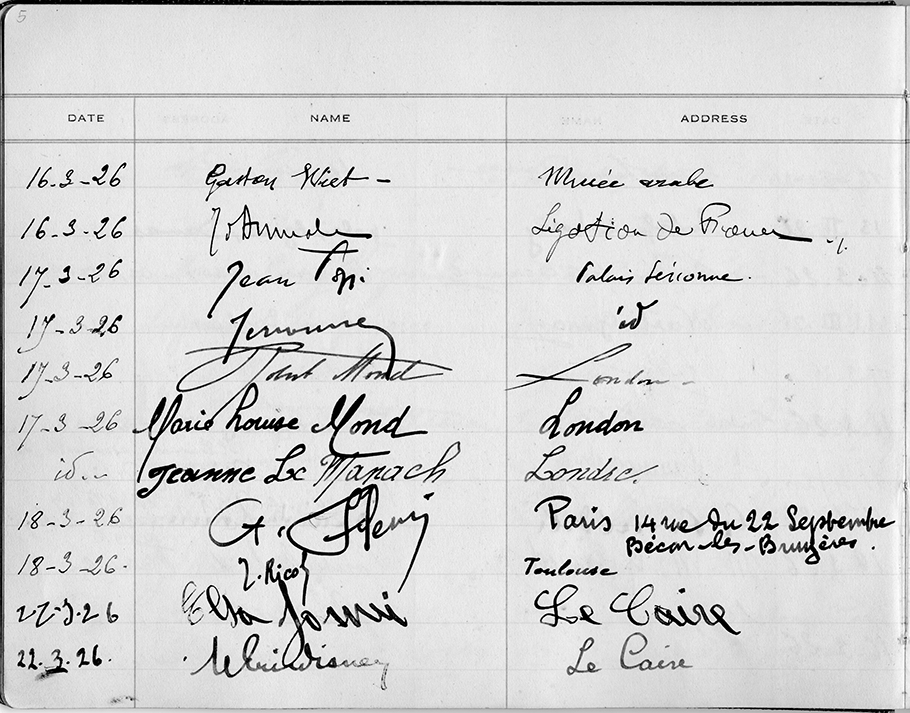 5
DATE NAME ADDRESS
16-3-26 Gaston Wiet - Musée arabe
16-3-26 Légation de France
17-3-26 Jean Palais Jéronne.
17-3-26 id
17-3-26 Robert Mond London -
17-3-26 Marie Louise Mond London
id -- Jeanne Le Manach Londres.
18-3-26 G. Paris 14 rue du 22 Septembre
Bécon-les-Bruyères.
18-3-26. J. Rico Toulouse
22-3-26 Elsa Le Caire
22.3.26. Le Caire